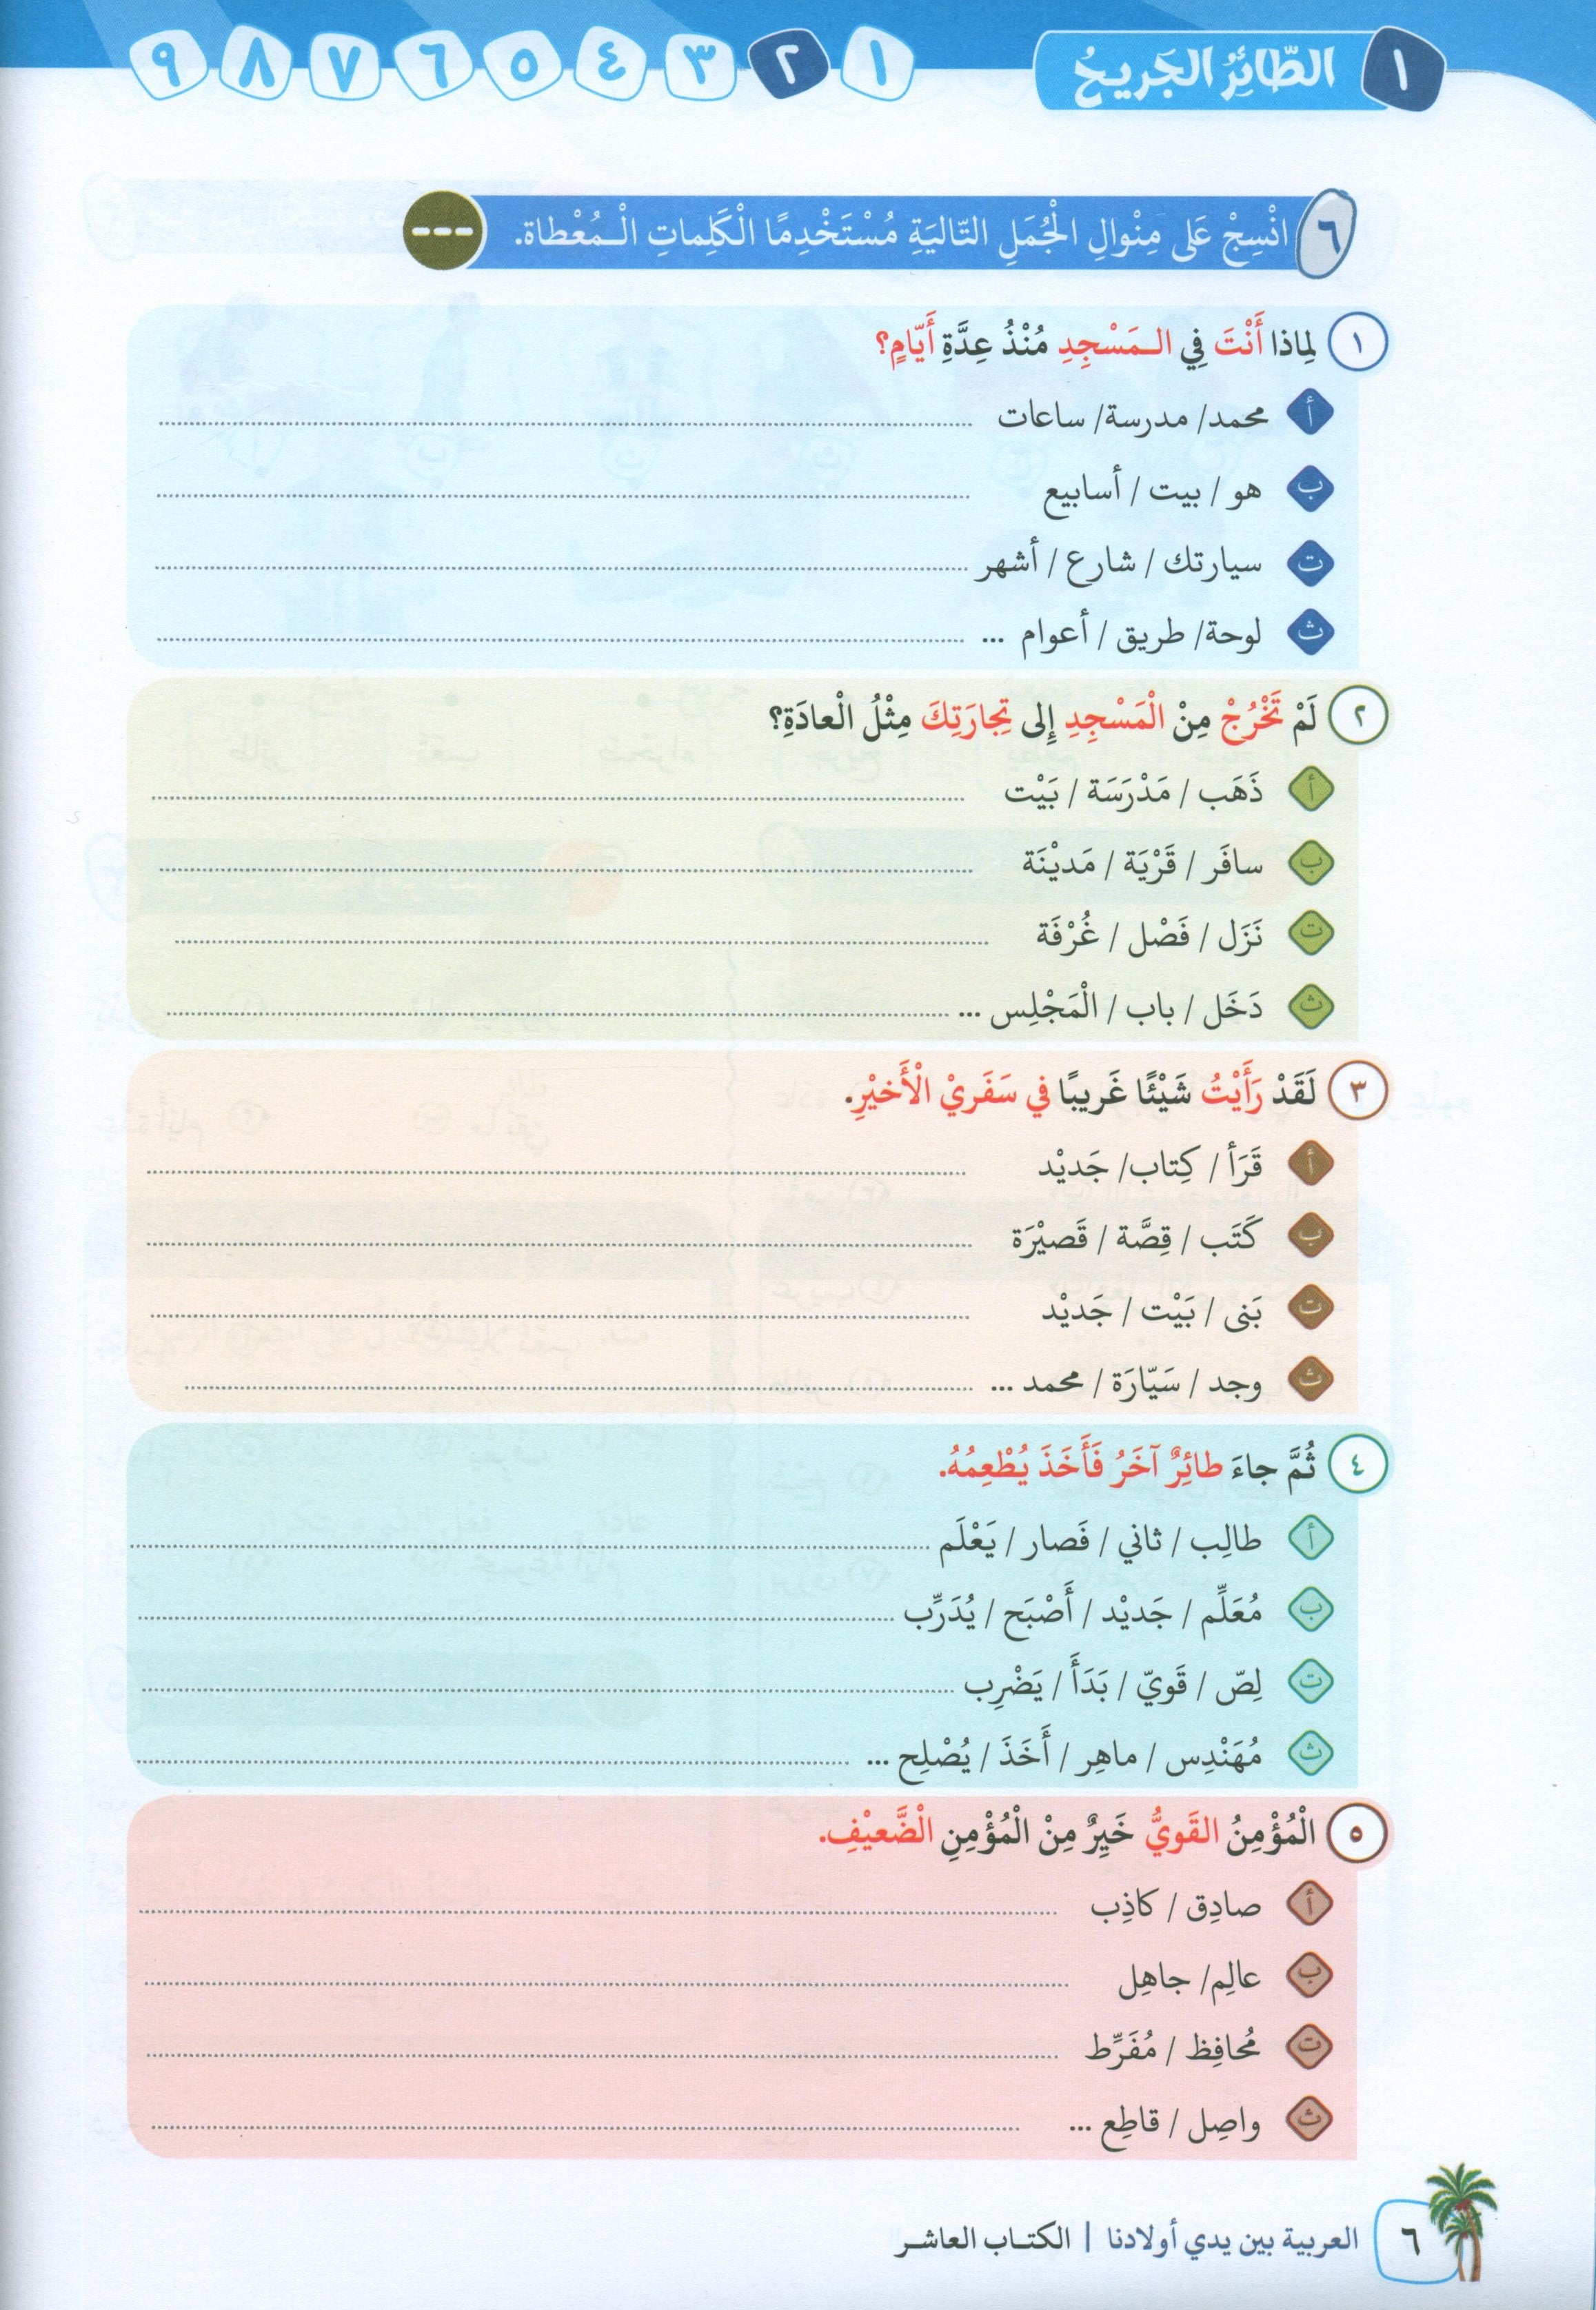 ١ الطّائِرُ الجَريحُ ١ ٢ ٣ ٤ ٥ ٦ ٧ ٨ ٩
٦ انْسِجْ عَلى مِنْوالِ الْجُمَلِ التّاليَةِ مُسْتَخْدِمًا الْكَلِماتِ الْـمُعْطاة. ---
١ لِماذا أَنْتَ فِي الـمَسْجِدِ مُنْذُ عِدَّةِ أَيّامٍ؟
أ محمد/ مدرسة/ ساعات
ب هو / بيت / أسابيع
ت سيارتك / شارع / أشهر
ث لوحة/ طريق / أعوام ...
٢ لَمْ تَخْرُجْ مِنْ الْمَسْجِدِ إِلى تِجارَتِكَ مِثْلُ الْعادَةِ؟
أ ذَهَب / مَدْرَسَة / بَيْت
ب سافَر / قَرْيَة / مَديْنَة
ت نَزَل / فَصْل / غُرْفَة
ث دَخَل / باب / الْمَجْلِس ...
٣ لَقَدْ رَأَيْتُ شَيْئًا غَريبًا في سَفَريْ الْأَخيْرِ.
أ قَرَأ / كِتاب/ جَديْد
ب كَتَب / قِصَّة / قَصيْرَة
ت بَنى / بَيْت / جَديْد
ث وجد / سَيّارَة / محمد ...
٤ ثُمَّ جاءَ طائِرٌ آخَرُ فَأَخَذَ يُطْعِمُهُ.
أ طالِب / ثاني / فَصار / يَعْلَم
ب مُعَلِّم / جَديْد / أَصْبَح / يُدَرِّب
ت لِصّ / قَويّ / بَدَأَ / يَضْرِب
ث مُهَنْدِس / ماهِر / أَخَذَ / يُصْلِح ...
٥ الْمُؤْمِنُ القَويُّ خَيِرٌ مِنْ الْمُؤْمِنِ الْضَّعيْفِ.
أ صادِق / كاذِب
ب عالِم/ جاهِل
ت مُحافِظ / مُفَرِّط
ث واصِل / قاطِع ...
٦ العربية بين يدي أولادنا | الكتـاب العاشـر